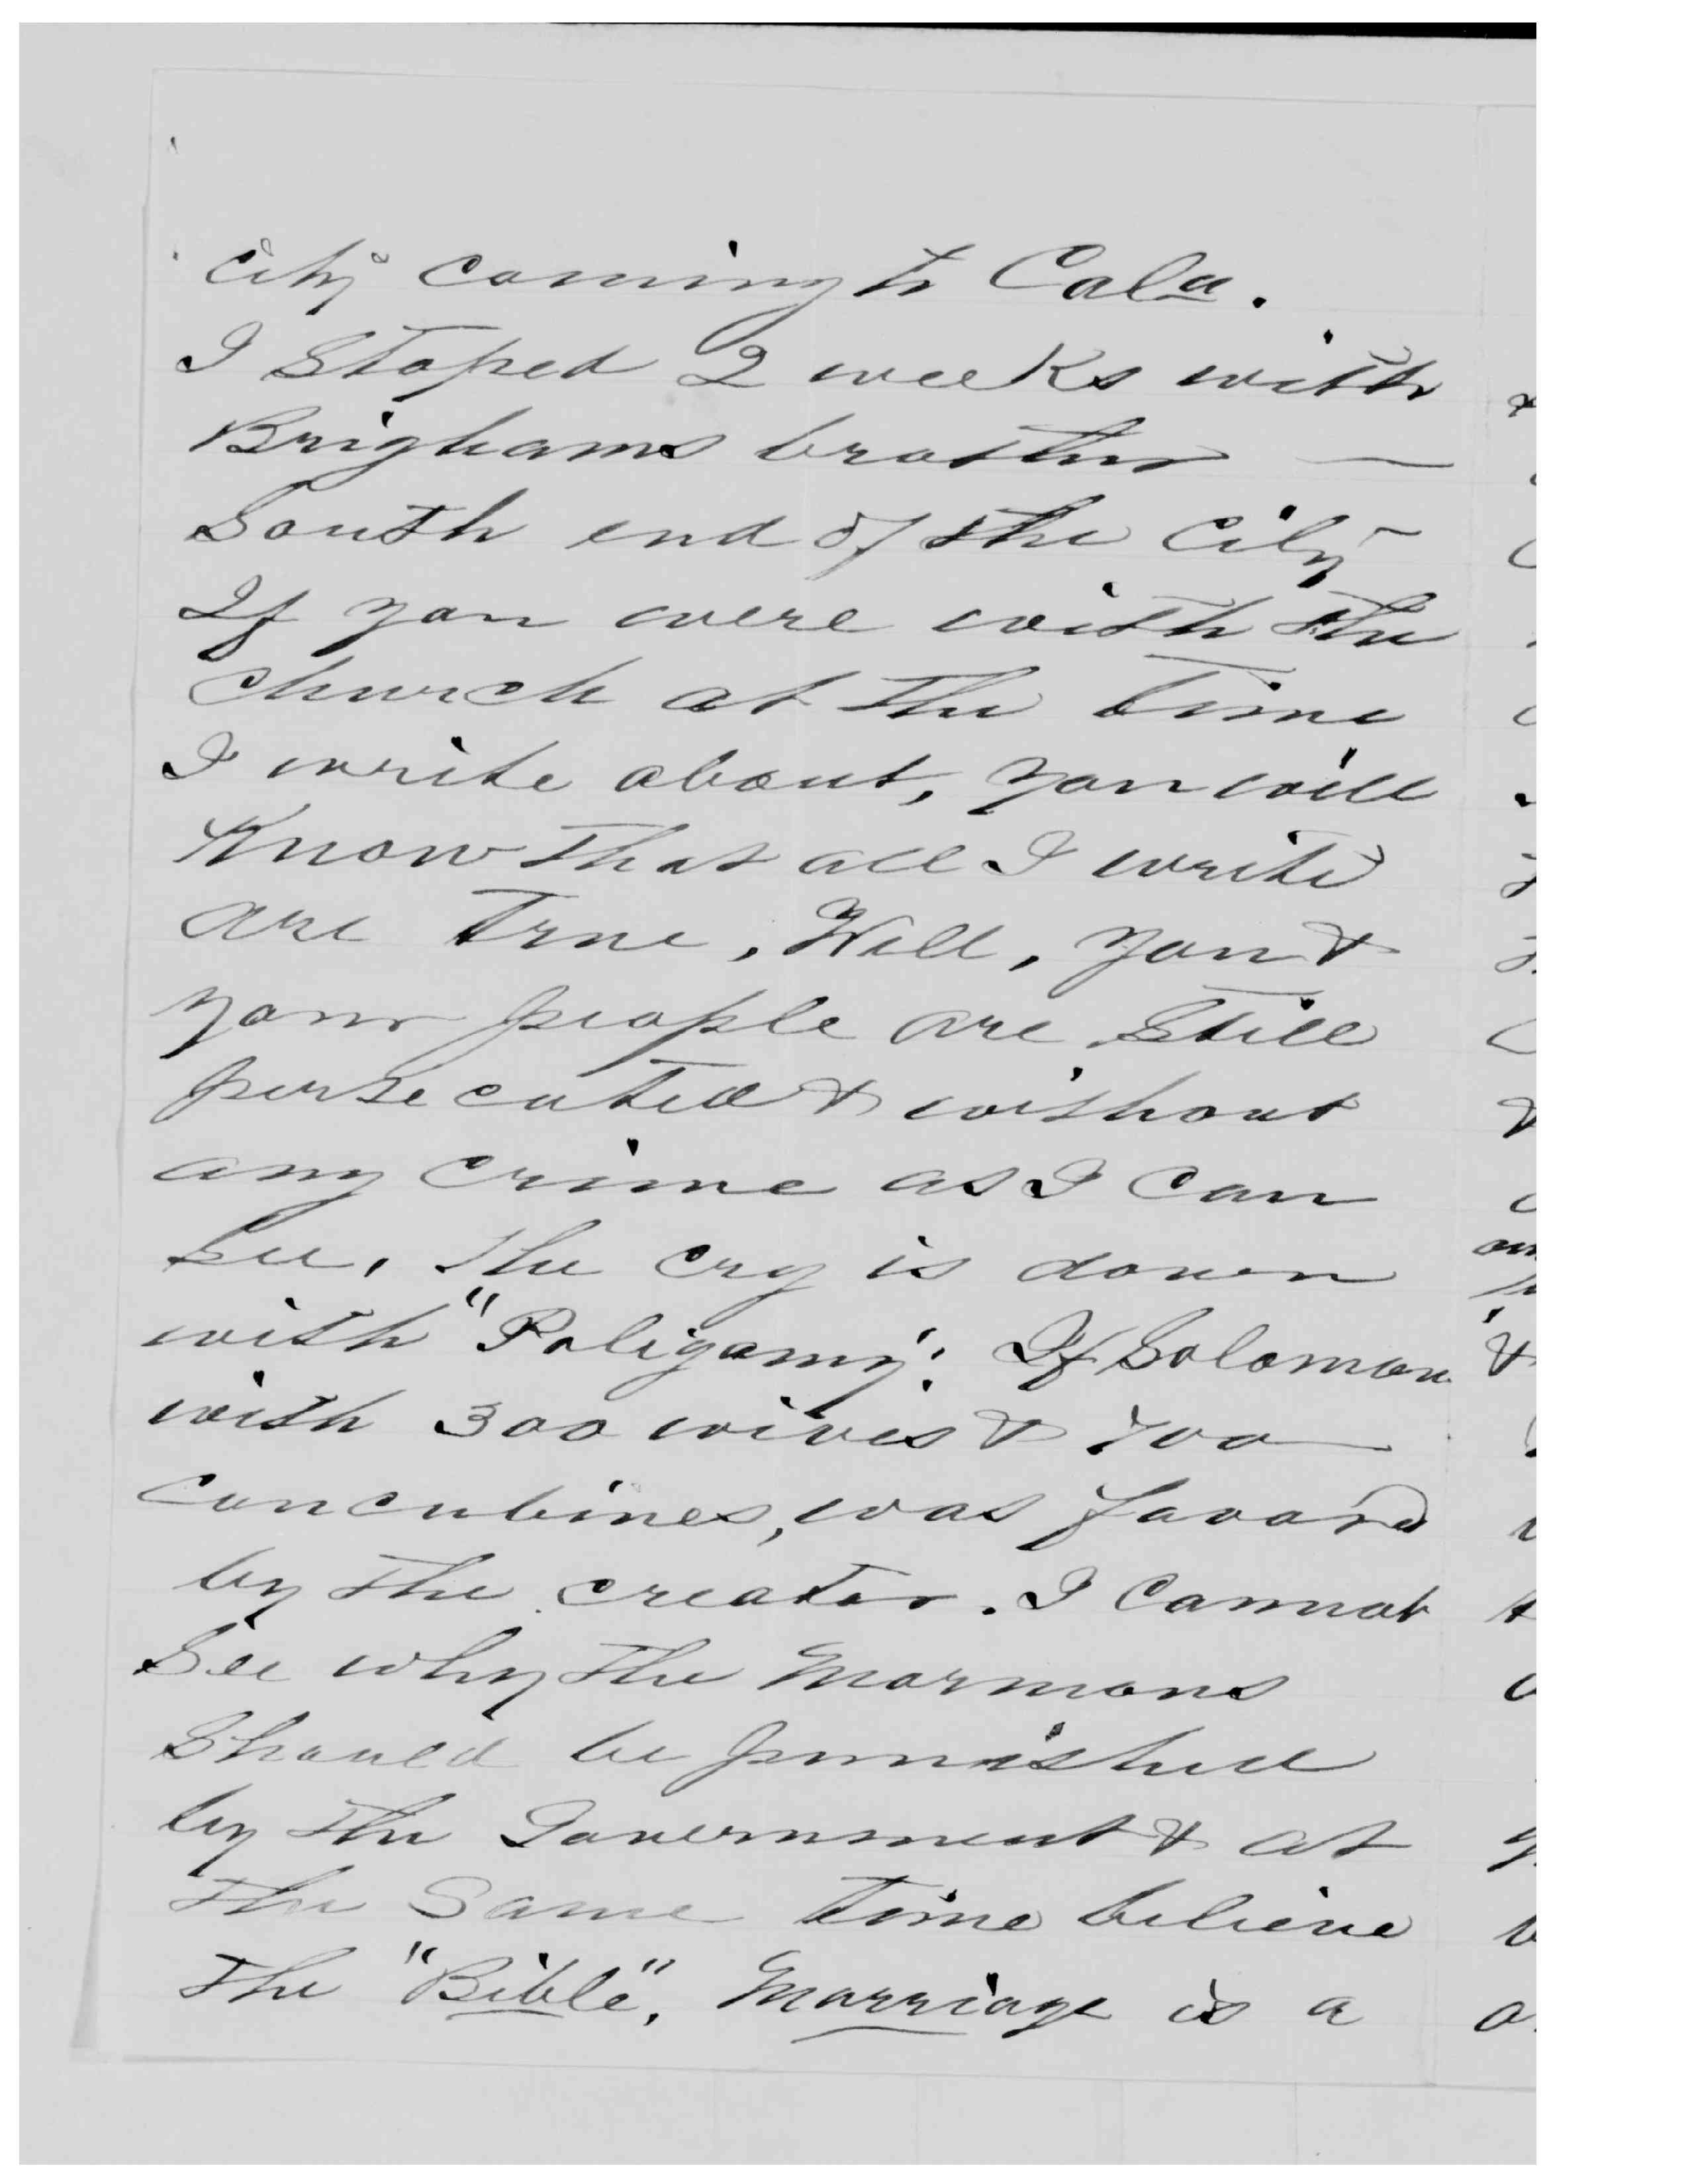 City coming to Cala.
I Stoped 2 weeks with
Brighams brother —
South end of the City -
If you were with the
Church at the time
I write about, you will
Know that all I write
are true, Well, you &
your people are still
persecuted & without
any crime as I can
See, the cry is down
with "Poligamy". If Solomon
with 300 wives & 700
concubines, was favord
by the creator. I Cannot
See why the Mormons
Should be punished
by the Government & at
the same time believe
the "Bible", Marriage is a